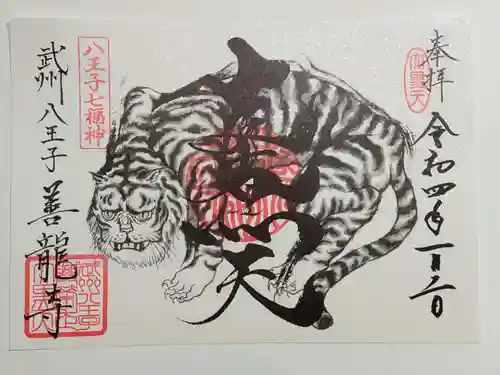 奉拝
大黒天
令和四年一月二日
大黒天
八王子七福神
武州 八王子 善龍寺